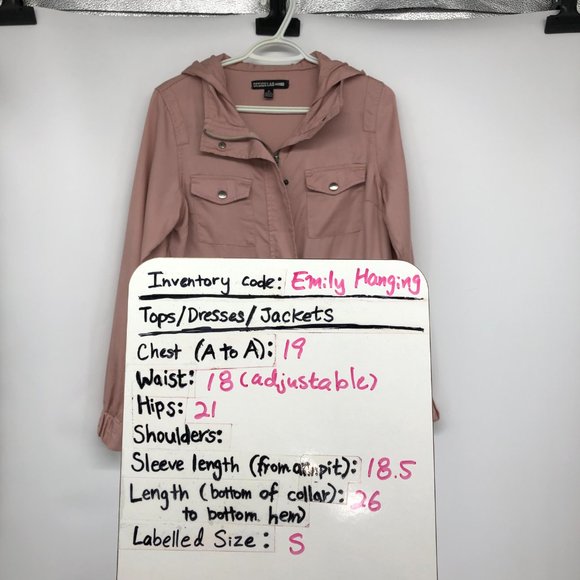 DESIGN LAB
Inventory code: Emily Hanging
Tops/Dresses/Jackets
Chest (A to A): 19
Waist: 18 (adjustable)
Hips: 21
Shoulders:
Sleeve length (from armpit): 18.5
Length (bottom of collar): 26
to bottom hem)
Labelled Size: S